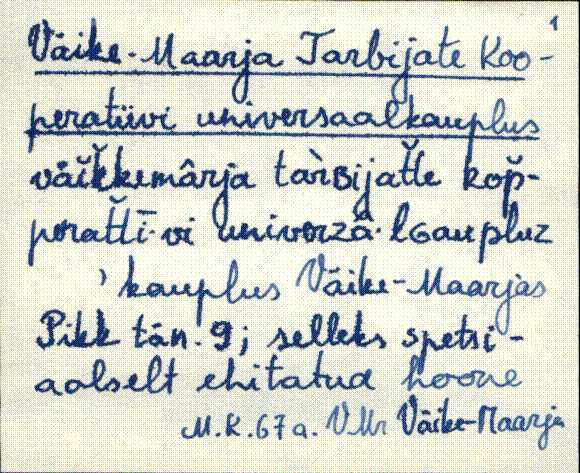 1
Väike-Maarja Tarbijate Koo-
peratiivi universaalkauplus
väi̬k̆kemârja tàrʙijat̆te kop̆-
perat̆tī·vi univerzâ·lɢaupluz
' kauplus Väike-Maarjas
Pikk tän. 9; selleks spetsi-
aalselt ehitatud hoone
M.K. 67 a. VMr Väike-Maarja